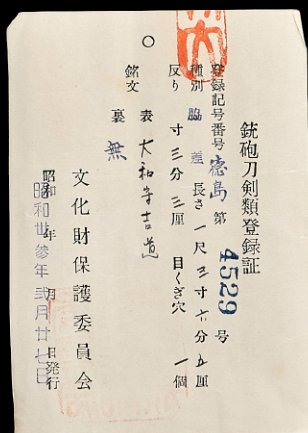 銃砲刀剣類登録証
登録記号番号 徳島 第 4529 号
種別 脇差 長さ 一尺三寸七分五厘
反り 寸三分三厘 目くぎ穴 一個
銘文 表 大和守吉道
裏 無
文化財保護委員会
昭和 年 月 日発行
昭和廿参年弐月廿七日